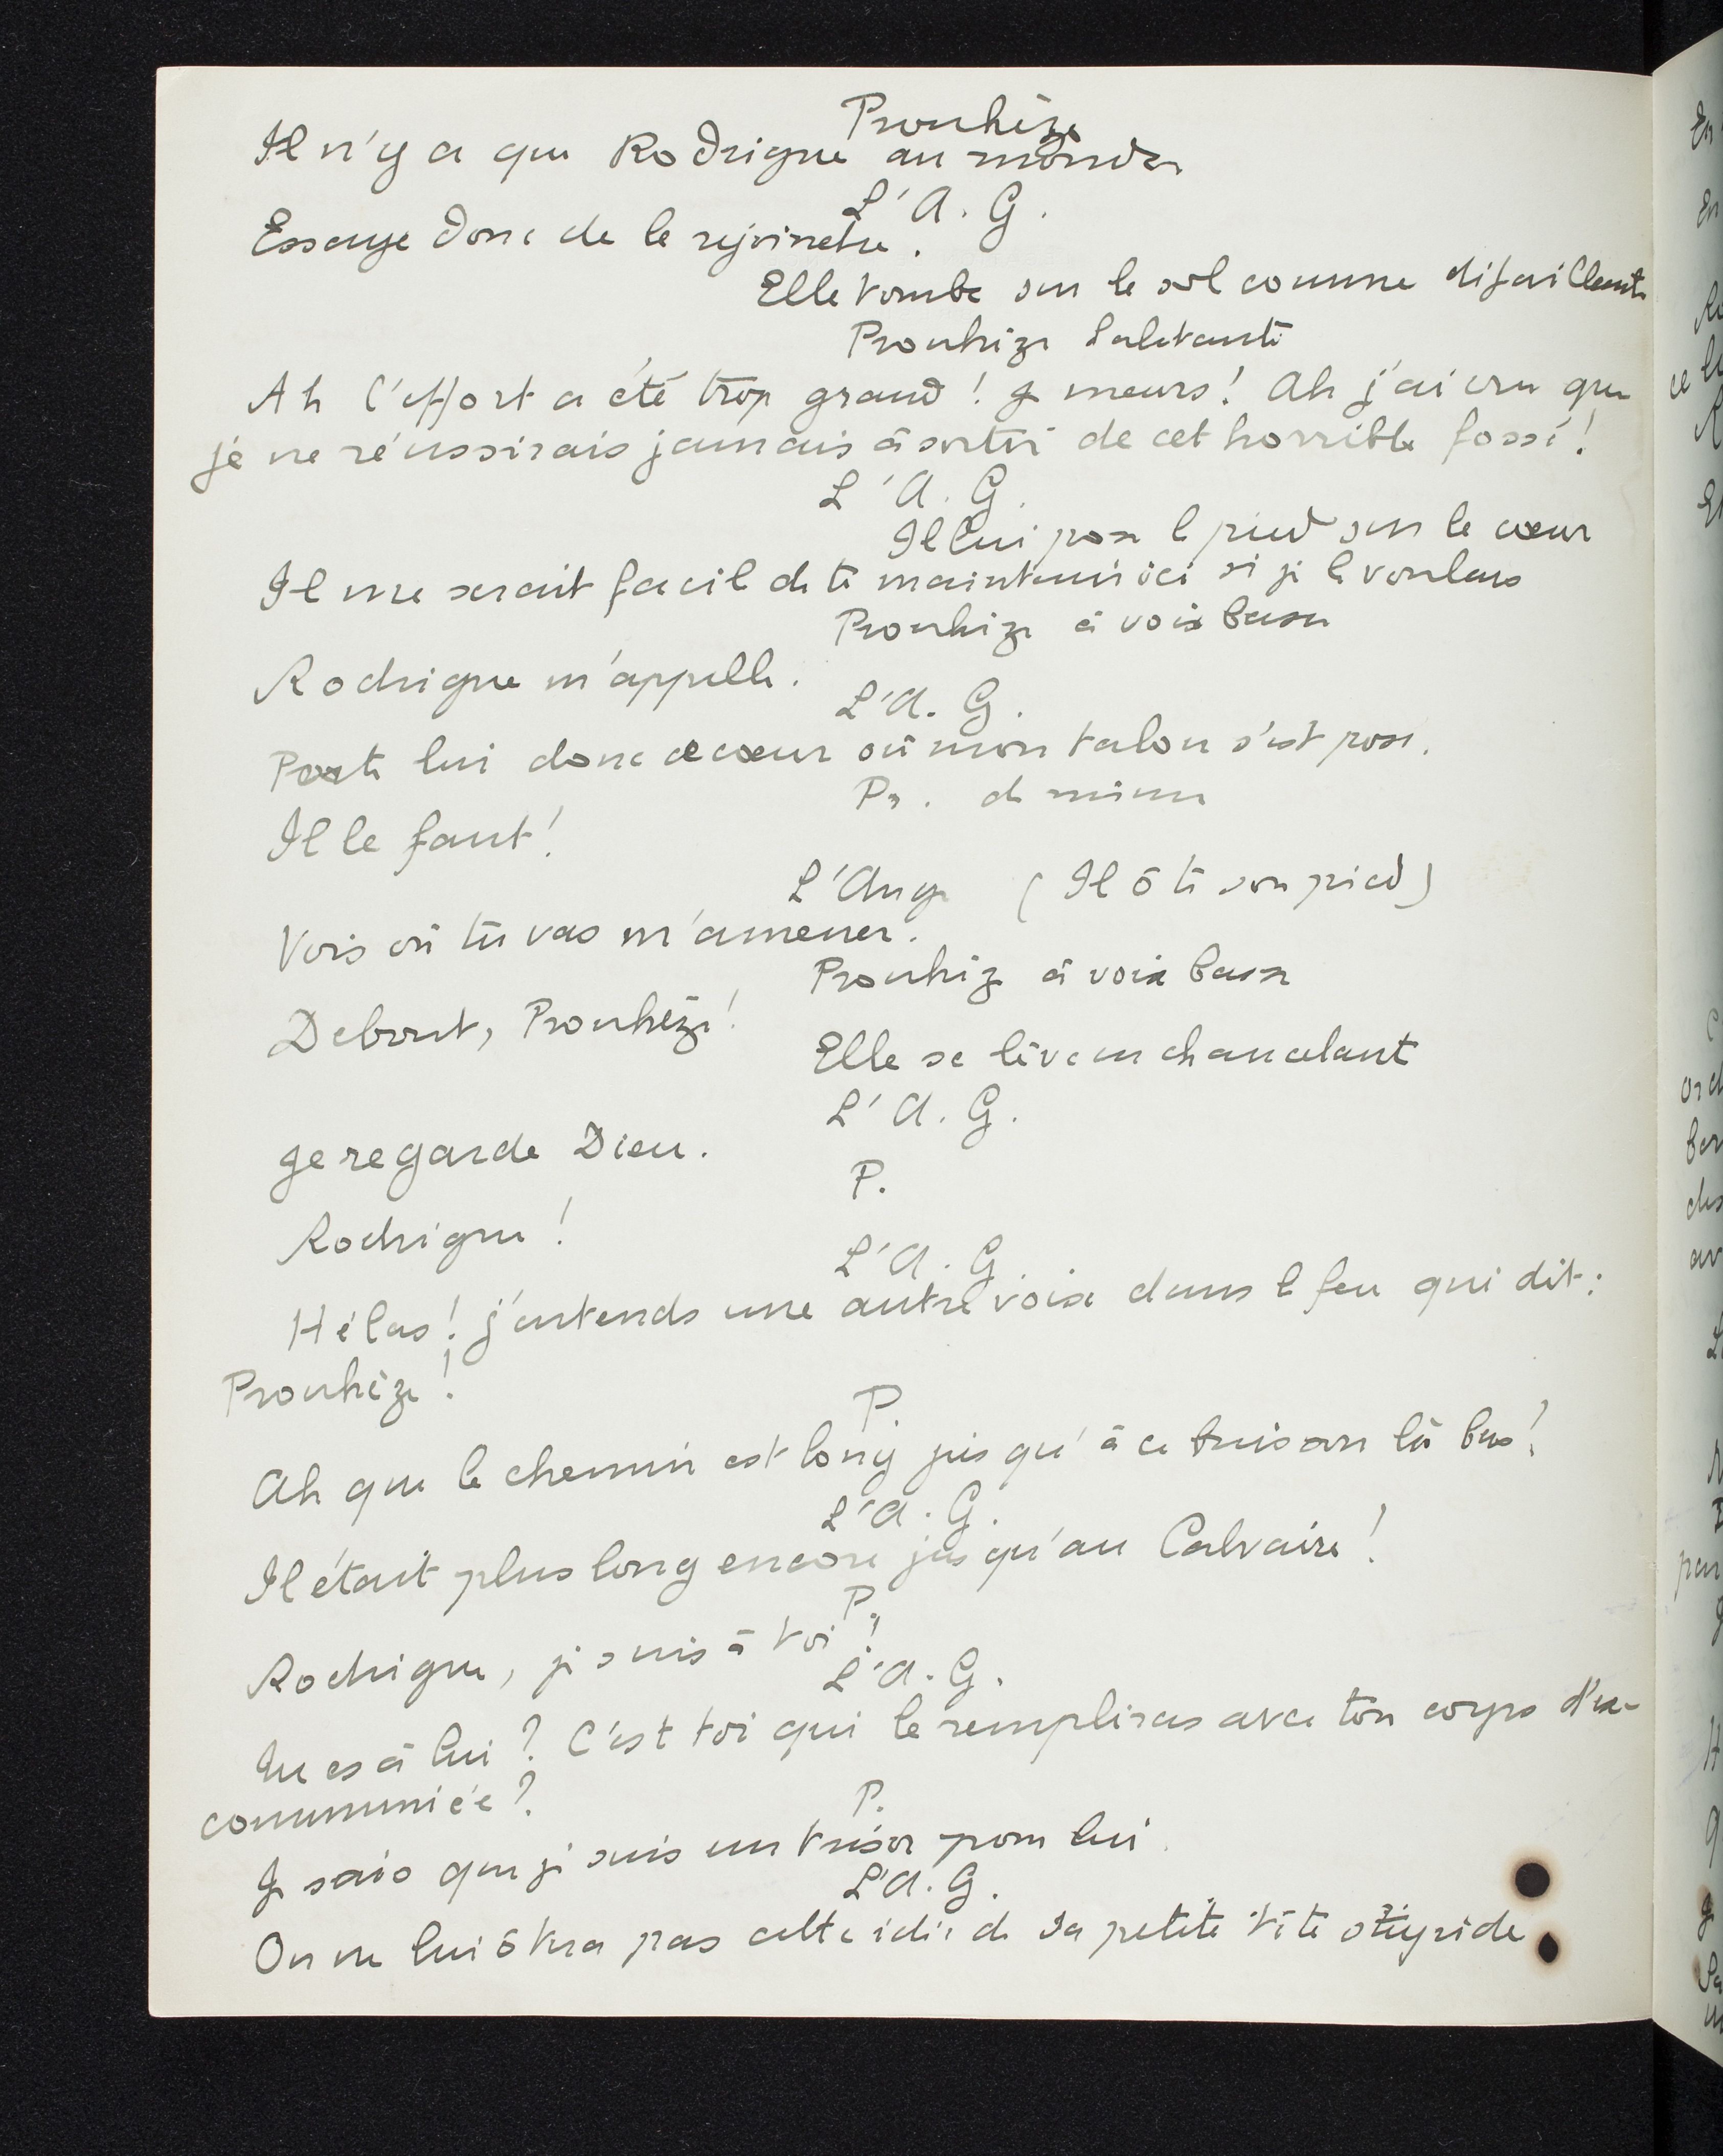 Prouhèze
Il n'y a que Rodrigue au monde
L'A. G.
Essaye donc de le rejoindre.
Elle tombe sur le sol comme défaillante
Prouhèze haletante
Ah l'effort a été trop grand ! Je meurs ! Ah j'ai cru que
je ne réussirais jamais à sortir de cet horrible fossé !
L'A. G.
Il lui pose le pied sur le cœur
Il me serait facile de te maintenir ici si je le voulais
Prouhèze à voix basse
Rodrigue m'appelle.
L'A. G.
Porte lui donc ce cœur où mon talon s'est posé.
Pr. de même
Il le faut !
L'Ange (Il ôte son pied)
Vois où tu vas m'amener.
Prouhèze à voix basse
Debout, Prouhèze !
Elle se lève en chancelant
L'A. G.
Je regarde Dieu.
P.
Rodrigue !
L'A. G.
Hélas ! j'entends une autre voix dans le feu qui dit :
Prouhèze !
P.
Ah que le chemin est long jusqu'à ce buisson là bas !
L'A. G.
Il était plus long encore jusqu'au Calvaire !
P.
Rodrigue, je suis à toi !
L'A. G.
Tu es à lui ? C'est toi qui le rempliras avec ton corps d'ex-
communiée ?
P.
Je sais que je suis un trésor pour lui.
L'A. G.
On ne lui ôtera pas cette idée de sa petite tête stupide